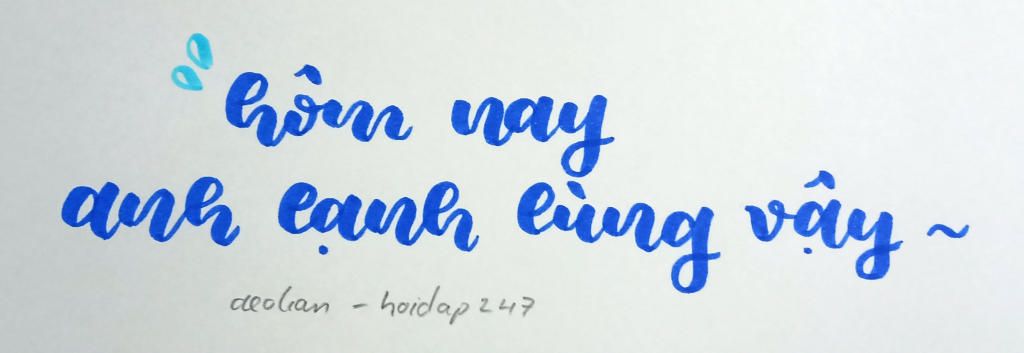 hôm nay
anh lạnh lùng vậy ~
aeolian - hoidap247